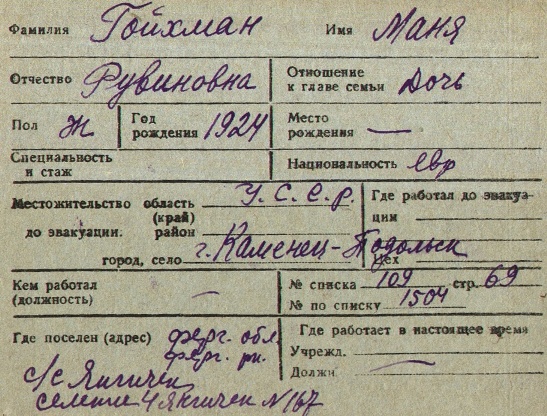 Фамилия Гойхман Имя Маня
Отчество Рувиновна Отношение к главе семьи Дочь
Пол Ж Год рождения 1924 Место рождения —
Специальность и стаж Национальность евр
Местожительство область (край) У.С.С.р. Где работал до эвакуа-
до эвакуации. район ции
город, село г. Каменец-Подольск Цех
Кем работал (должность) — № списка 109 стр. 69
№ по списку 1504
Где поселен (адрес) ферг. обл. Где работает в настоящее время
ферг. рн. Учрежд.
с/с Янгичек Должн —
селение Янгичек N 167